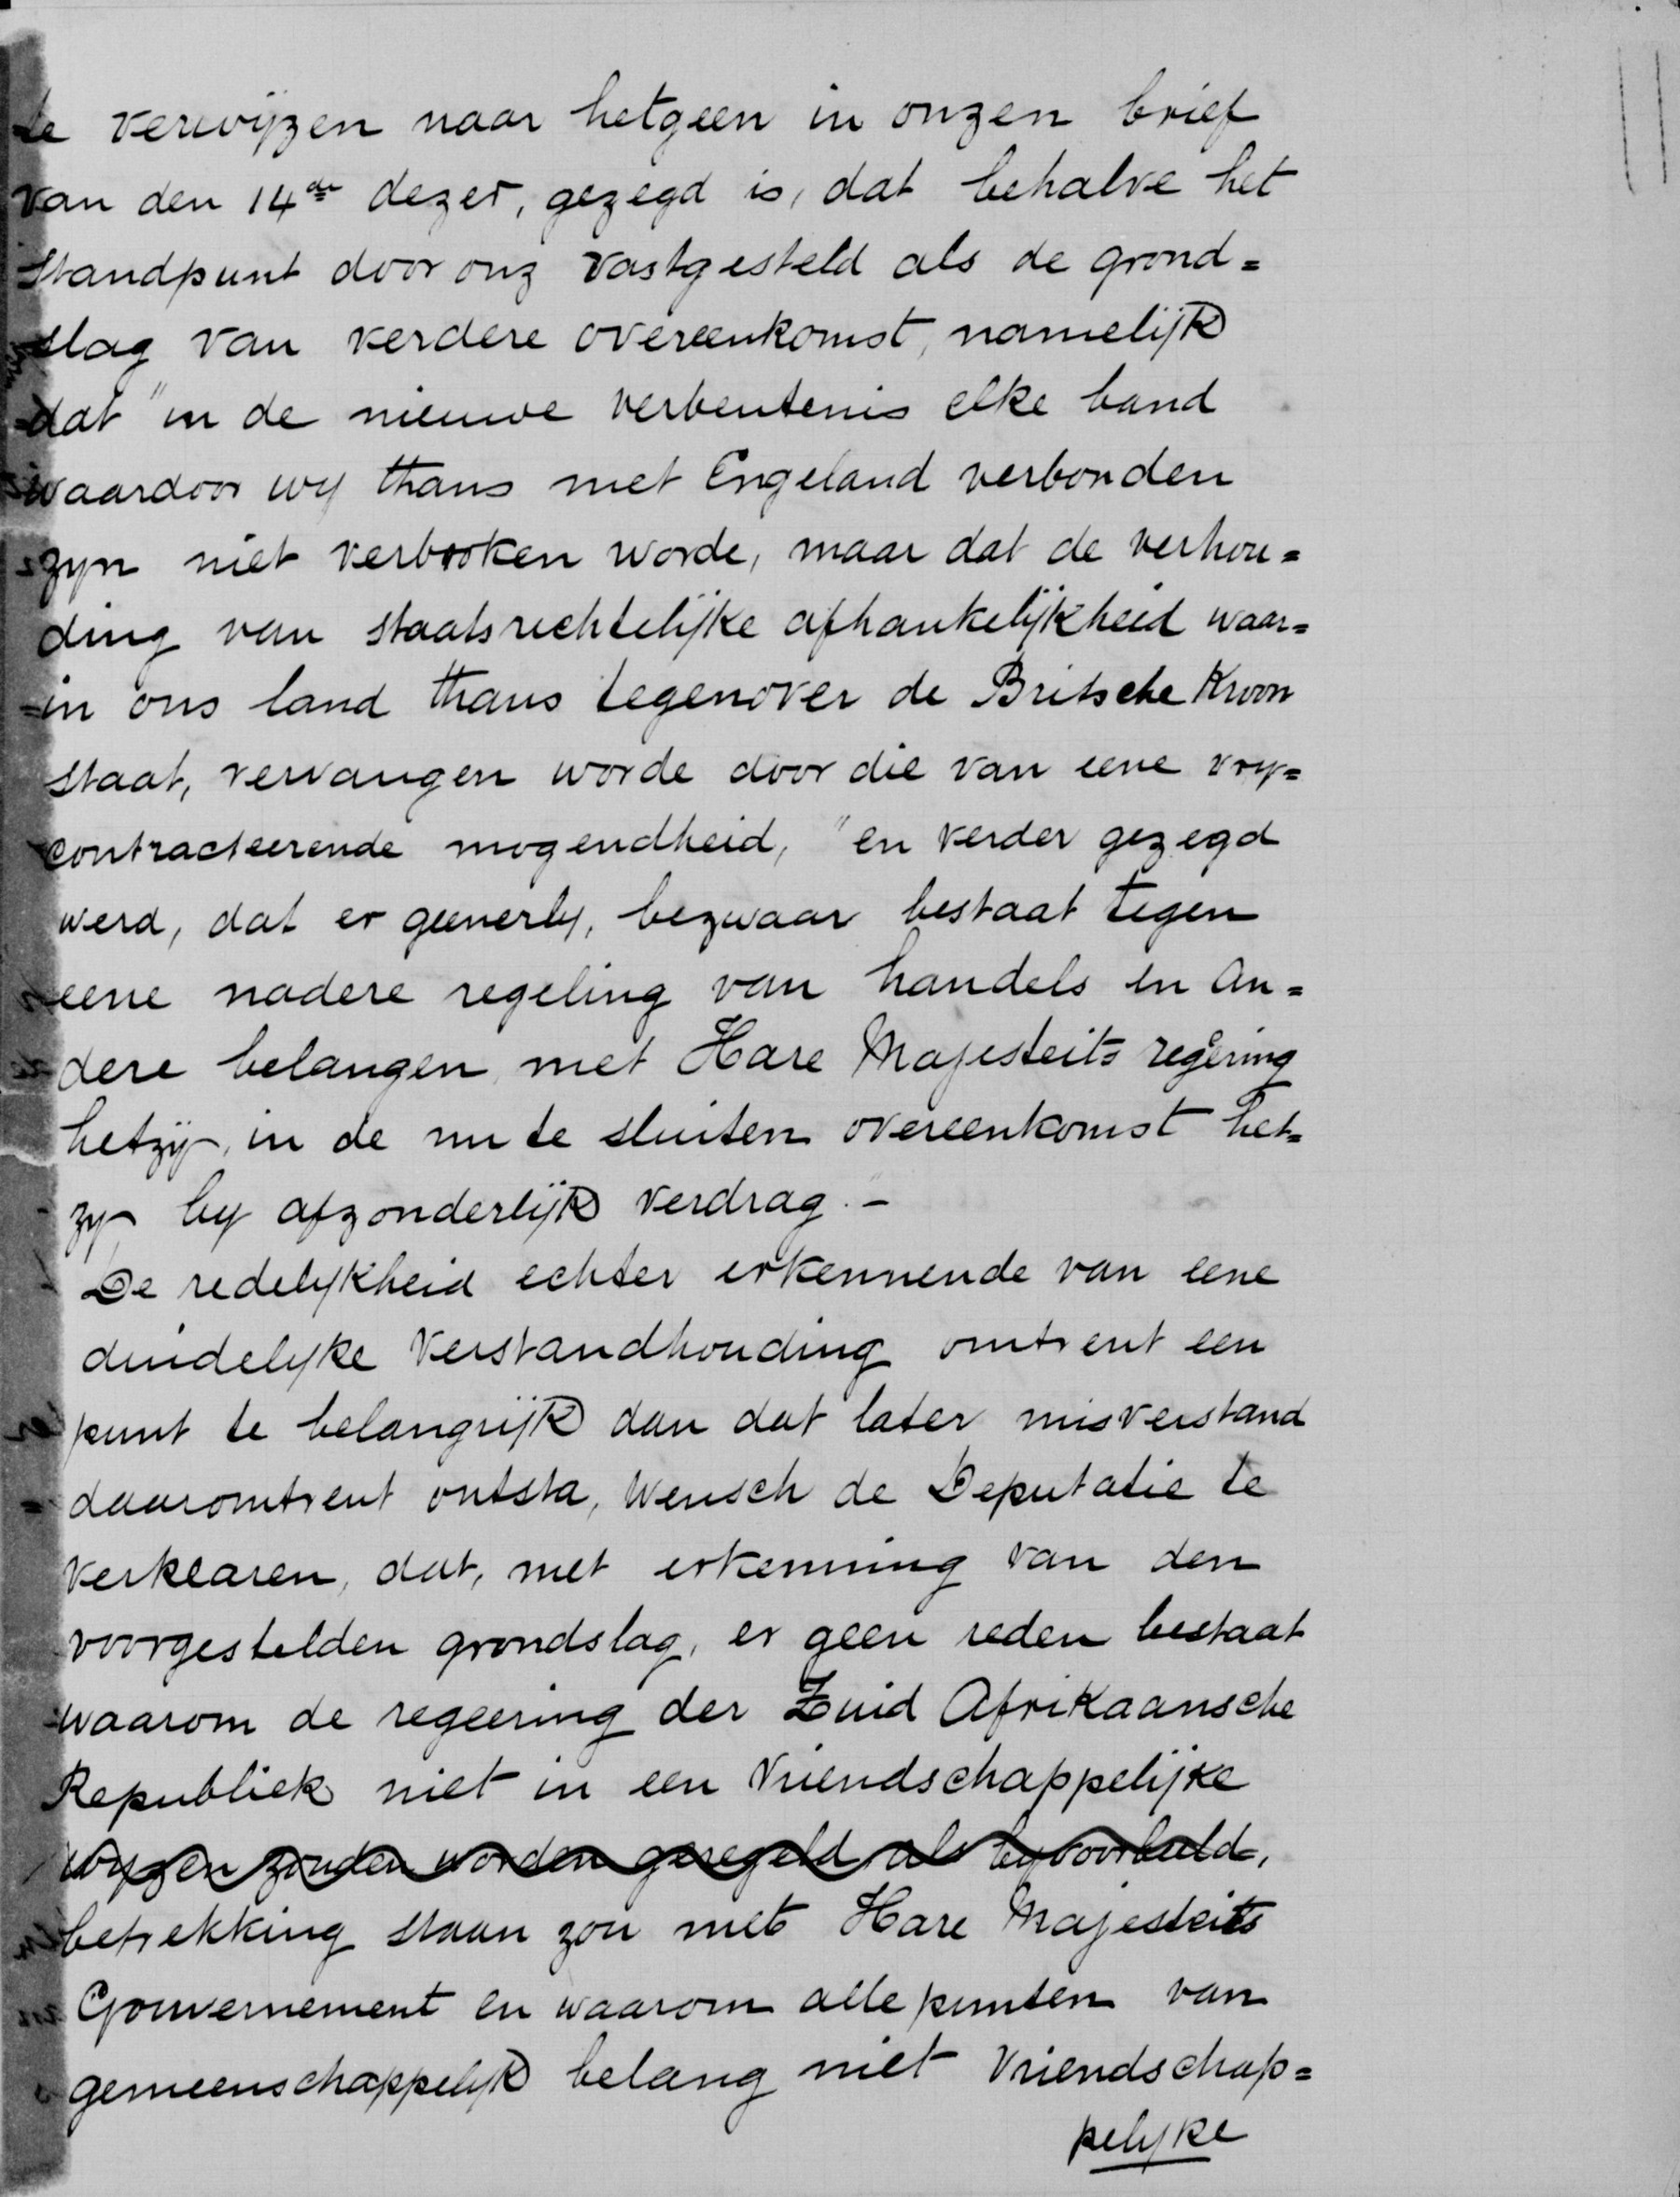 te verwijzen naar hetgeen in onzen brief
van den 14de dezer, gezegd is, dat behalve het
Standpunt door onz vastgesteld als de grond=
slag van verdere overeenkomst, namelijk
dat "in de nieuwe verbentenis elke band
waardoor wy thans met Engeland verbonden
zyn niet verbroken worde, maar dat de verhou=
ding van staatsrechtelijke afhankelijkheid waar=
in ons land thans tegenover de Britsche Kroon
staat, vervangen worde door die van eene vry=
contracteerende mogendheid," en verder gezegd
werd, dat er geenerly, bezwaar bestaat tegen
eene nadere regeling van handels en an=
dere belangen, met Hare Majesteits regering
hetzij, in de nu te sluiten overeenkomst het=
zy by afzonderlijk verdrag.-
De redelykheid echter erkennende van eene
duidelyke Verstandhouding omtrent een
punt te belangrijk dan dat later misverstand
daaromtrent ontsta, Wensch de Deputatie te
Verklaren, dat, met erkenning van den
voorgestelden grondslag, er geen reden bestaat
waarom de regeering der Zuid Afrikaansche
Republiek niet in een Vriendschappelijke
wyzen zouden worden geregeld als byvoorbeeld,
betrekking staan zou met Hare Majesteits
Gouvernement en waarom alle punten van
gemeenschappelyk belang niet Vriendschap=
pelyke